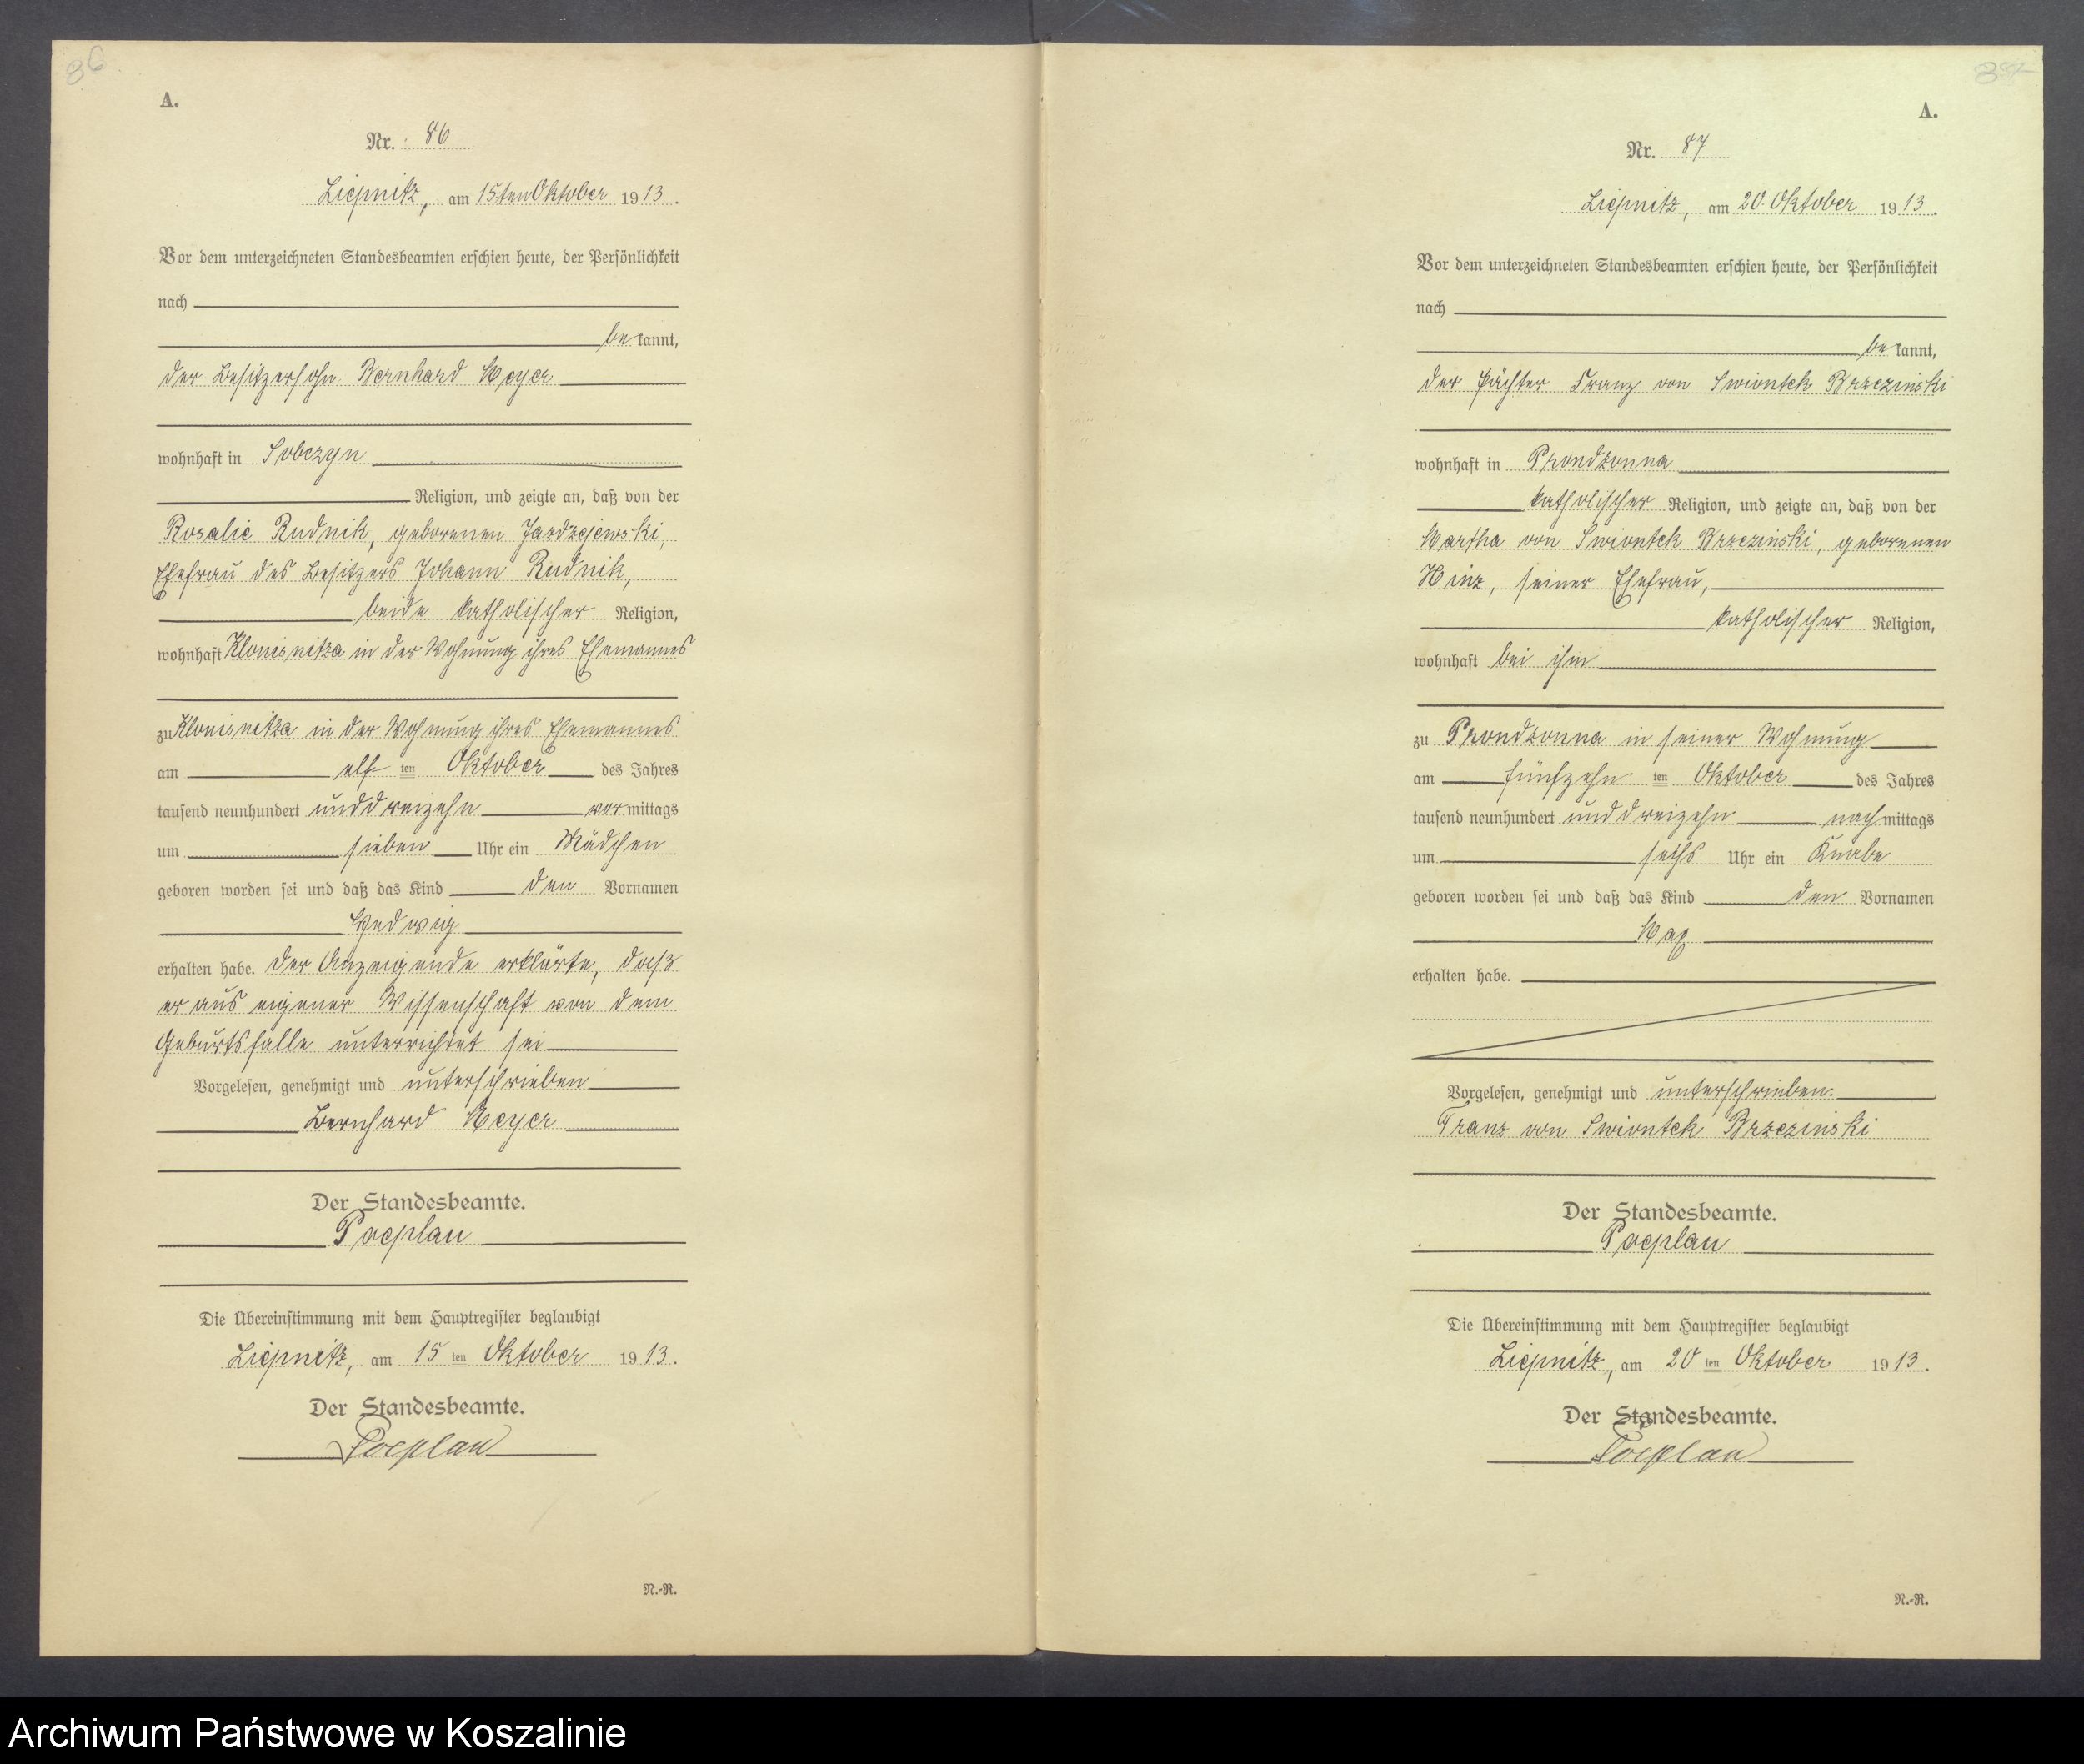 86
A.
Nr. 86
Liepnitz, am 15ten Oktober 1913.
Vor dem unterzeichneten Standesbeamten erschien heute, der Persönlichkeit
nach
be kannt,
der Besitzersohn Bernhard Meyer
wohnhaft in Sobczyn
Religion, und zeigte an, daß von der
Rosalie Rudnik, geborenen Jazdzejewski,
Ehefrau des Besitzers Johann Rudnik,
beide katholischer Religion,
wohnhaft Klonisnitza in der Wohnung ihres Ehemannes
zu Klonisnitza in der Wohnung ihres Ehemannes
am elf ten Oktober des Jahres
tausend neunhundert unddreizehn vormittags
um sieben Uhr ein Mädchen
geboren worden sei und daß das Kind den Vornamen
Hedwig
erhalten habe. Der Anzeigende erklärte, daß
er aus eigener Wissenschaft von dem
Geburtsfalle unterrichtet sei
Vorgelesen, genehmigt und unterschrieben
Bernhard Meyer
Der Standesbeamte.
Poeplau
Die Übereinstimmung mit dem Hauptregister beglaubigt
Liepnitz, am 15 ten Oktober 1913.
Der Standesbeamte.
Poeplau
N.-R.
87
A.
Nr. 87
Liepnitz, am 20. Oktober 1913.
Vor dem unterzeichneten Standesbeamten erschien heute, der Persönlichkeit
nach
be kannt,
der Pächter Franz von Swiontek Brzezinski
wohnhaft in Prondzonna
katholischer Religion, und zeigte an, daß von der
Martha von Swiontek Brzezinski, geborenen
Hinz, seiner Ehefrau,
katholischer Religion,
wohnhaft bei ihm
zu Prondzonna in seiner Wohnung
am fünfzehn ten Oktober des Jahres
tausend neunhundert unddreizehn nachmittags
um sechs Uhr ein Knabe
geboren worden sei und daß das Kind den Vornamen
Max
erhalten habe.
Vorgelesen, genehmigt und unterschrieben.
Franz von Swiontek Brzezinski
Der Standesbeamte.
Poeplau
Die Übereinstimmung mit dem Hauptregister beglaubigt
Liepnitz, am 20 ten Oktober 1913.
Der Standesbeamte.
Poeplau
N.-R.
Archiwum Państwowe w Koszalinie